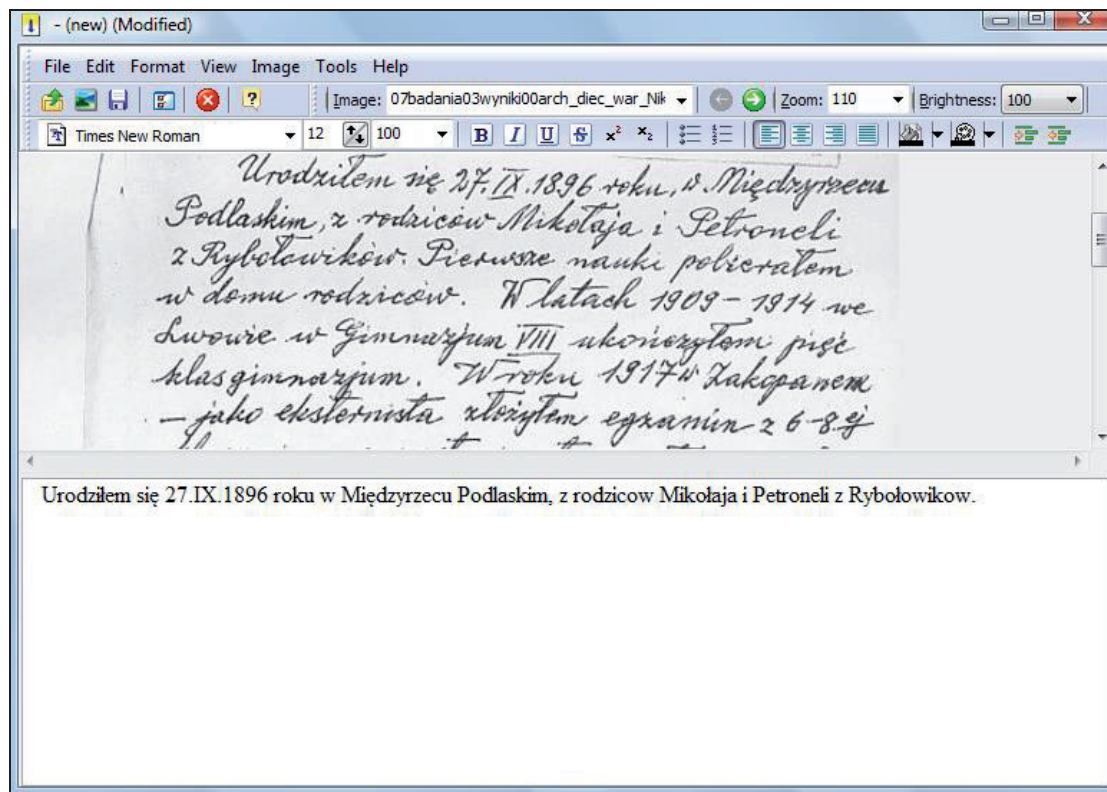 - (new) (Modified)
File Edit Format View Image Tools Help
Image: 07badania03wyniki00arch_diec_war_Nik Zoom: 110 Brightness: 100
Times New Roman 12 100 B I U S x² x₂
Urodziłem się 27.IX.1896 roku, w Międzyrzecu
Podlaskim, z rodzicow Mikołaja i Petroneli
z Rybołowików. Pierwsze nauki pobierałem
w domu rodziców. W latach 1909 – 1914 we
Lwowie w Gimnazjum VIII ukończyłem pięć
klas gimnazjum. W roku 1917 w Zakopanem
– jako eksternista złożyłem egzamin z 6-8 ej
Urodziłem się 27.IX.1896 roku w Międzyrzecu Podlaskim, z rodzicow Mikołaja i Petroneli z Rybołowikow.